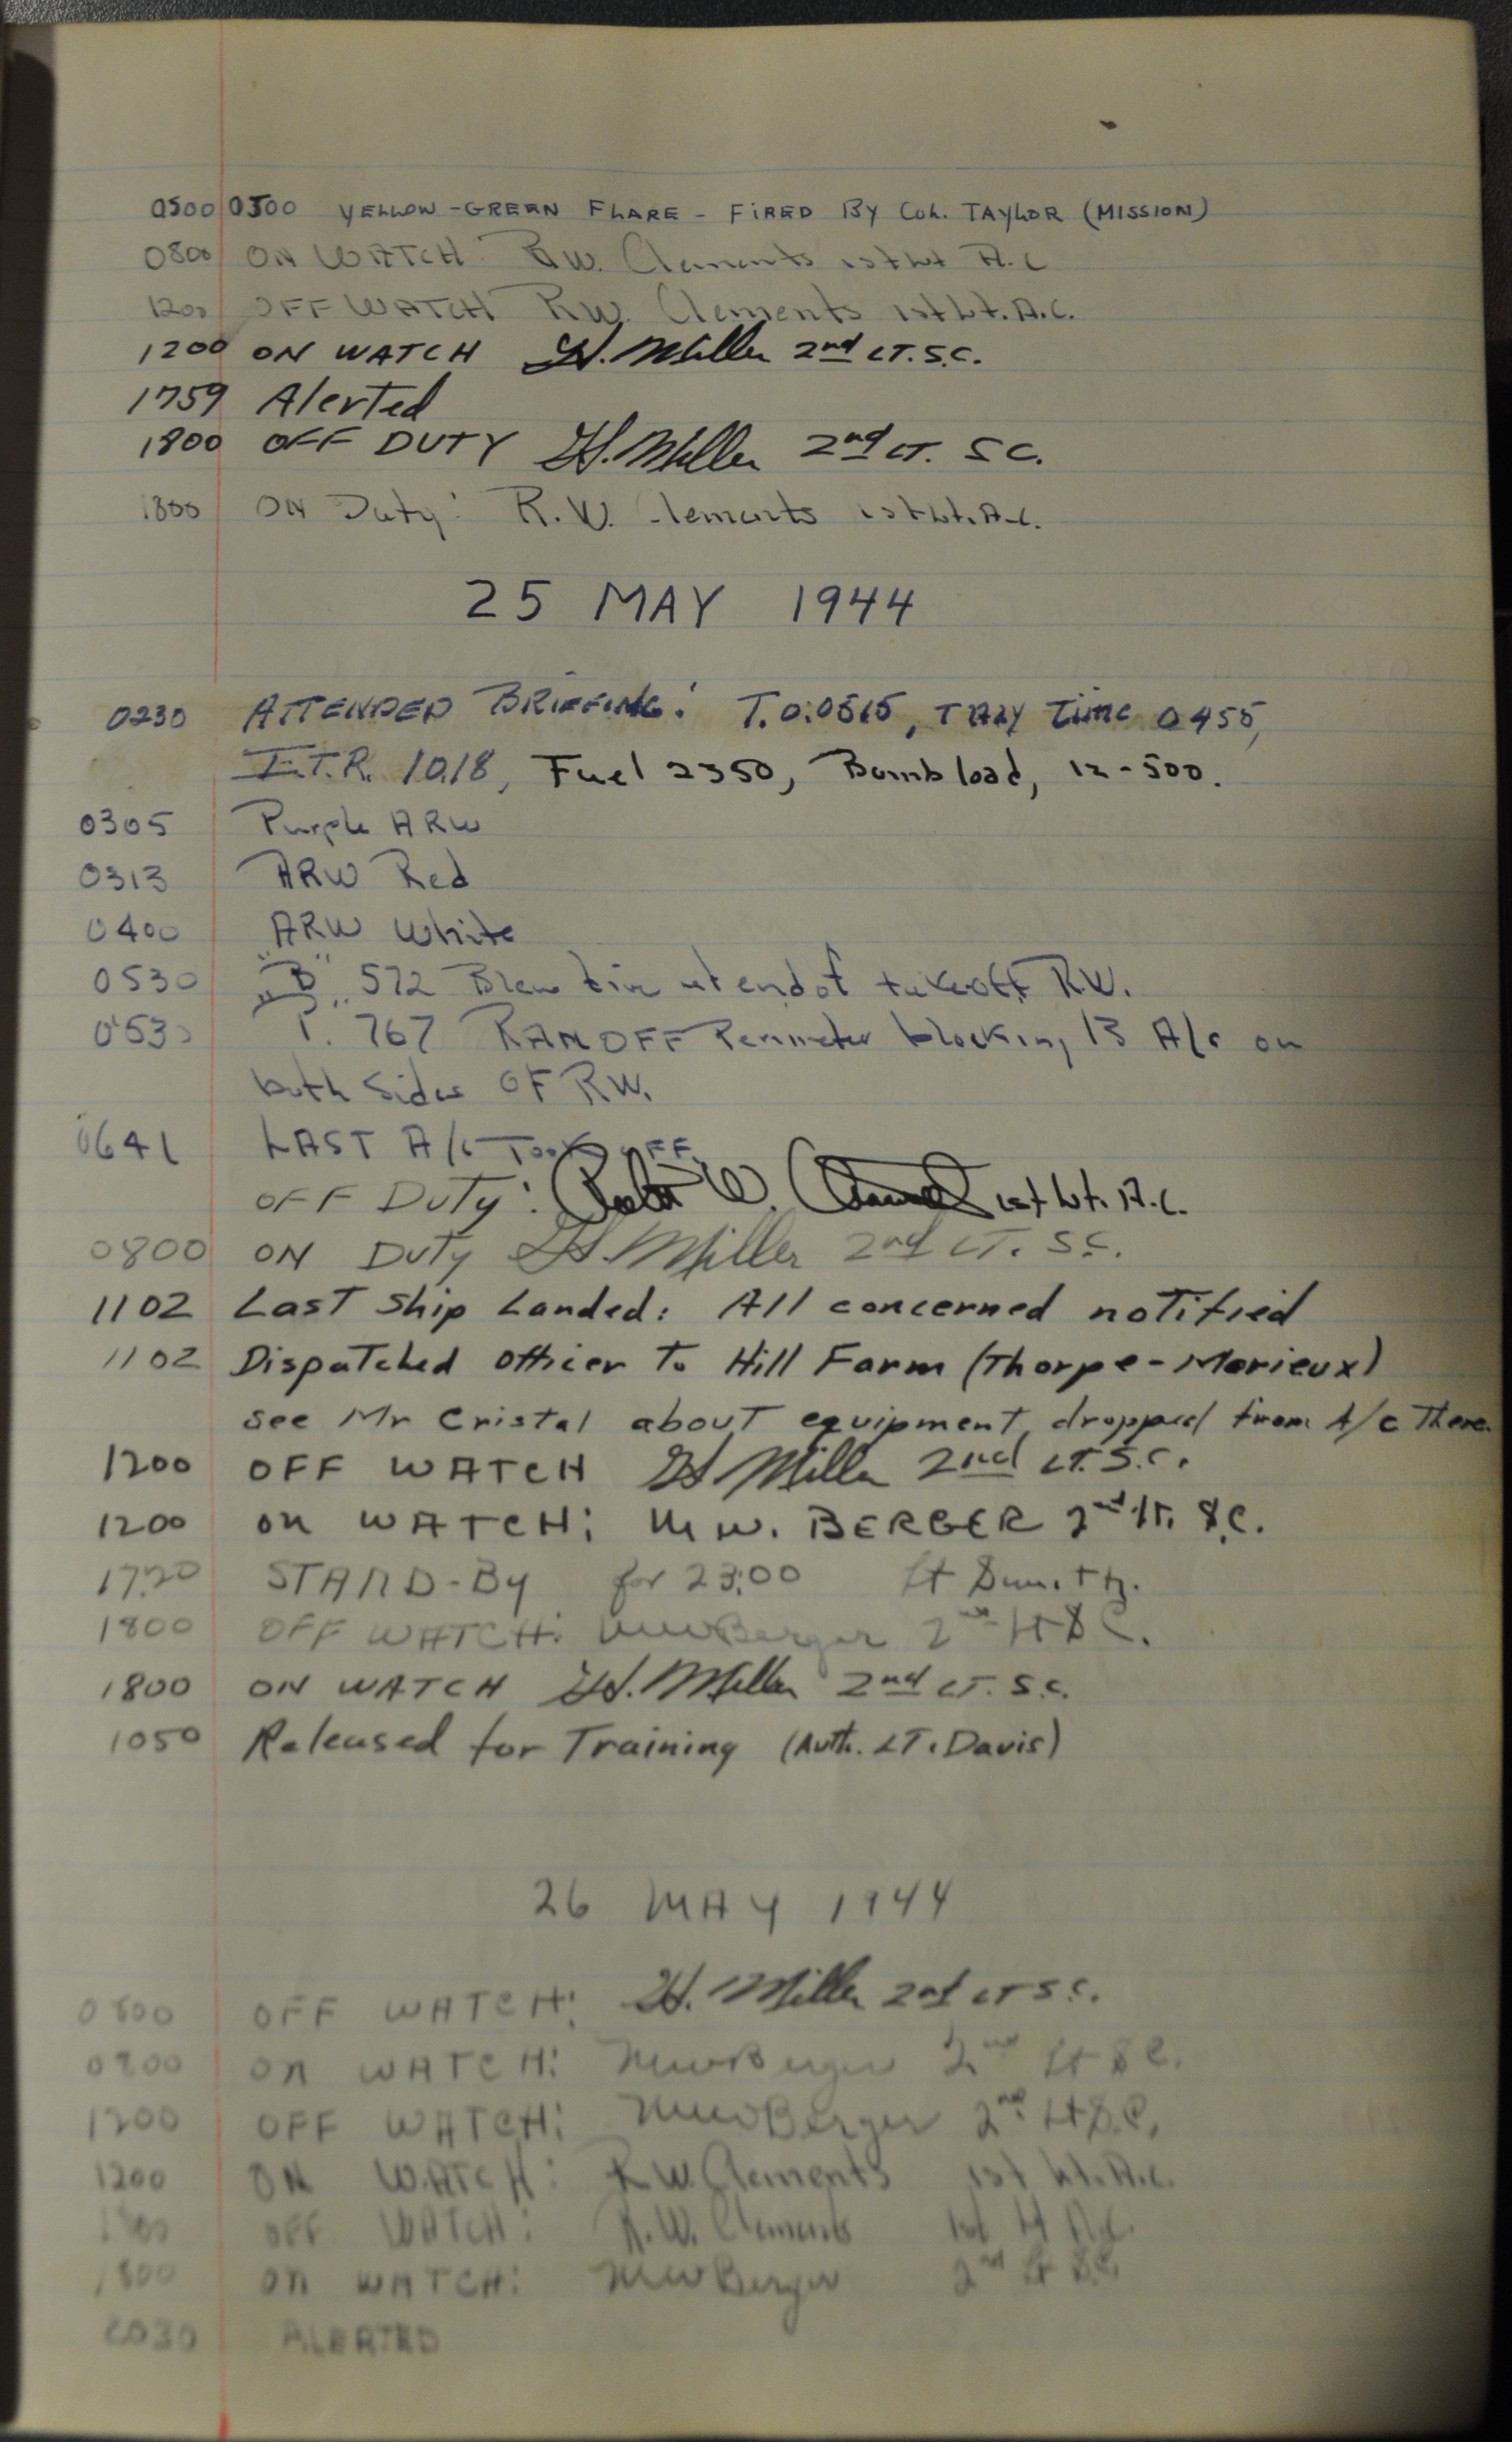 0500 0500 YELLOW-GREEN FLARE - FIRED BY COL. TAYLOR (MISSION)
0800 ON WATCH R.W. Clements 1st Lt A.C
1200 OFF WATCH R.W. Clements 1st Lt. A.C.
1200 ON WATCH H. Miller 2nd LT. S.C.
1759 Alerted
1800 OFF DUTY H. Miller 2nd LT. S.C.
1800 ON Duty: R.W. Clements 1st Lt. A.C.
25 MAY 1944
0230 ATTENDED BRIEFING: T.O. 0515, TAXY Time 0455,
E.T.R. 1018, Fuel 2350, Bomb load, 12-500.
0305 Purple ARW
0313 ARW Red
0400 ARW White
0530 "B" 572 Blew tire at end of takeoff RW.
0530 "P" 767 RAN OFF Perimeter blocking 13 A/c on
both sides OF RW.
0641 LAST A/c TOOK OFF.
OFF Duty: Robt W. Clements 1st Lt. A.C.
0800 ON Duty H. Miller 2nd LT. S.C.
1102 Last Ship Landed: All concerned notified
1102 Dispatched officer to Hill Farm (Thorpe-Morieux)
see Mr Cristal about equipment dropped from A/c There.
1200 OFF WATCH H Miller 2nd LT. S.C.
1200 on WATCH: M W. BERGER 2nd Lt. S.C.
1720 STAND-By for 23:00 Lt Smith.
1800 OFF WATCH: MWBerger 2nd Lt S C.
1800 ON WATCH H. Miller 2nd LT. S.C.
1050 Released for Training (Auth. LT. Davis)
26 MAY 1944
0800 OFF WATCH: H. Miller 2nd LT S.C.
0800 on WATCH: MWBerger 2nd Lt S C.
1200 OFF WATCH: MWBerger 2nd Lt S.C.
1200 ON WATCH: R.W. Clements 1st Lt. A.C.
1800 OFF WATCH: R.W. Clements 1st Lt A.C.
1800 on WATCH: MWBerger 2nd Lt S.C.
2030 ALERTED